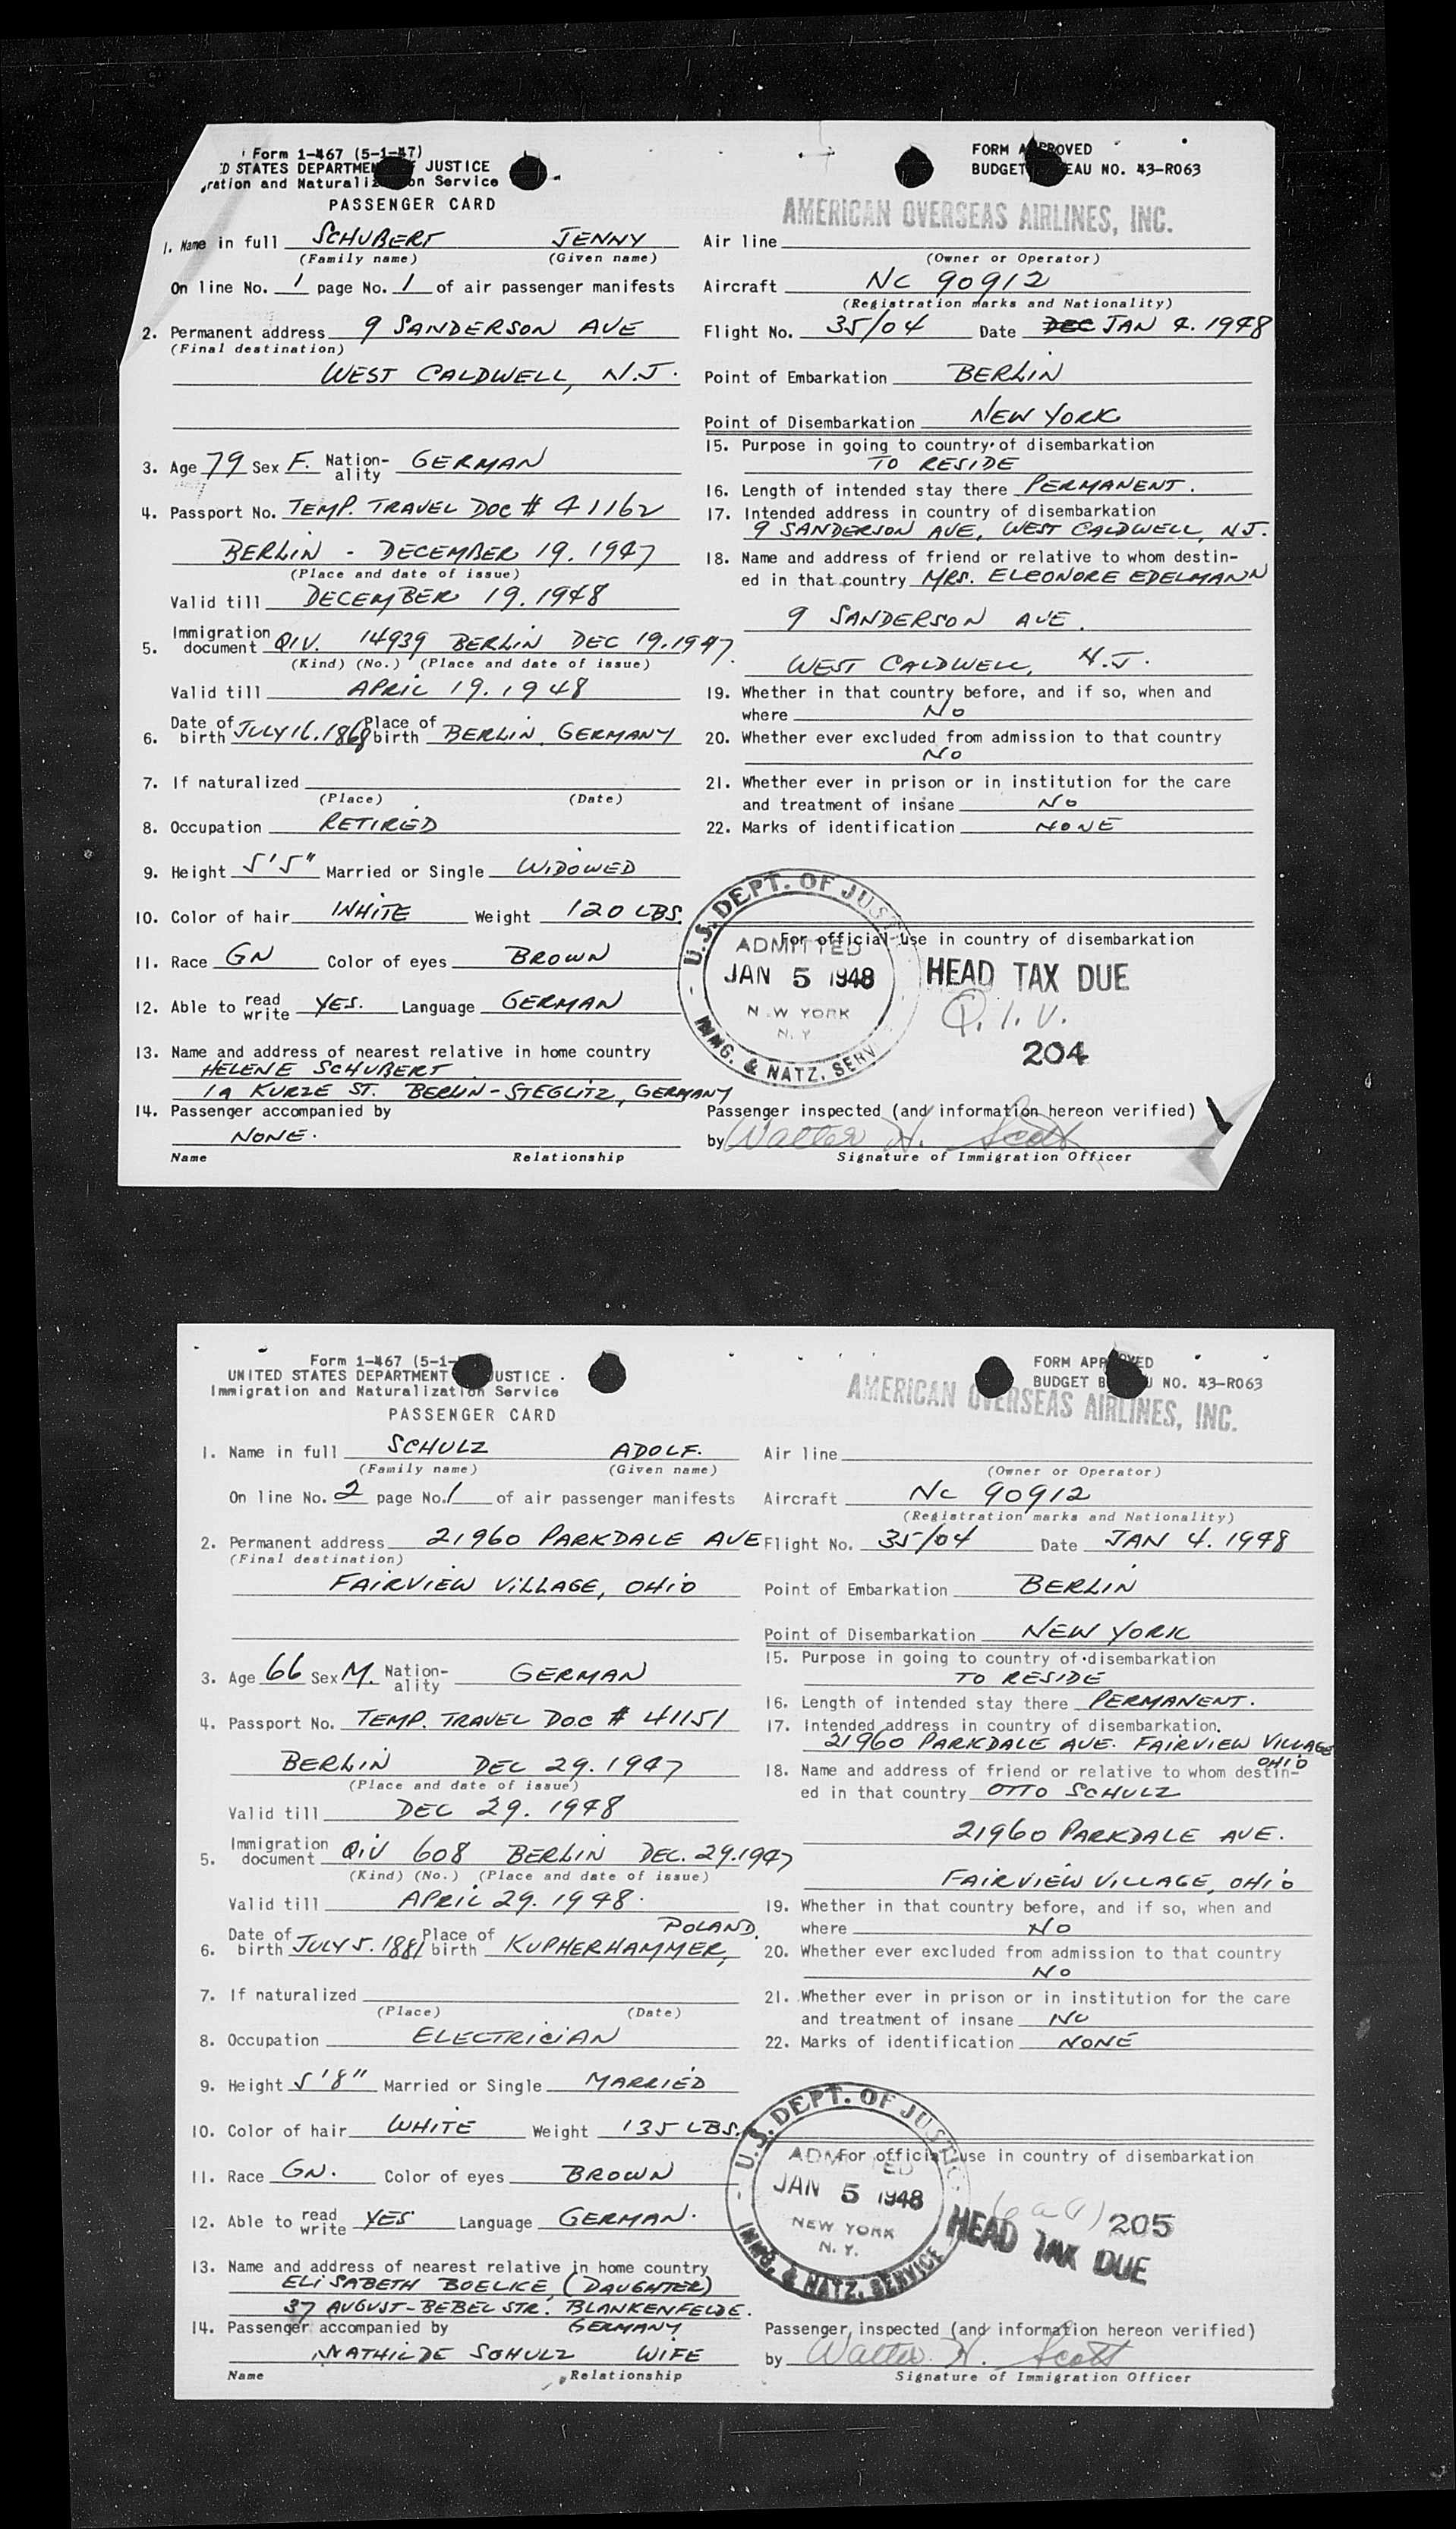 Form 1-467 (5-1-47)
D STATES DEPARTMENT OF JUSTICE
ration and Naturalization Service
PASSENGER CARD
FORM APPROVED
BUDGET BUREAU NO. 43-R063
AMERICAN OVERSEAS AIRLINES, INC.
1. Name in full SCHUBERT JENNY
(Family name) (Given name)
On line No. 1 page No. 1 of air passenger manifests
2. Permanent address 9 SANDERSON AVE
(Final destination)
WEST CALDWELL, N.J.
3. Age 79 Sex F. Nation-ality GERMAN
4. Passport No. TEMP. TRAVEL DOC # 41162
BERLIN - DECEMBER 19. 1947
(Place and date of issue)
Valid till DECEMBER 19. 1948
5. Immigration document QIV. 14939 BERLIN DEC 19.1947.
(Kind) (No.) (Place and date of issue)
Valid till APRIL 19. 1948
6. Date of birth JULY 16. 1868 Place of birth BERLIN, GERMANY
7. If naturalized
(Place) (Date)
8. Occupation RETIRED
9. Height 5'5" Married or Single WIDOWED
10. Color of hair WHITE Weight 120 LBS.
11. Race GN Color of eyes BROWN
12. Able to read write YES. Language GERMAN
13. Name and address of nearest relative in home country
HELENE SCHUBERT
19 KURZE ST. BERLIN-STEGLITZ, GERMANY
14. Passenger accompanied by
NONE.
Name Relationship
Air line
(Owner or Operator)
Aircraft NC 90912
(Registration marks and Nationality)
Flight No. 35/04 Date DEC JAN 4. 1948
Point of Embarkation BERLIN
Point of Disembarkation NEW YORK
15. Purpose in going to country of disembarkation
TO RESIDE
16. Length of intended stay there PERMANENT.
17. Intended address in country of disembarkation
9 SANDERSON AVE, WEST CALDWELL, NJ.
18. Name and address of friend or relative to whom destin-
ed in that country MRS. ELEONORE EDELMANN
9 SANDERSON AVE.
WEST CALDWELL, N.J.
19. Whether in that country before, and if so, when and
where NO
20. Whether ever excluded from admission to that country
NO
21. Whether ever in prison or in institution for the care
and treatment of insane NO
22. Marks of identification NONE
For official use in country of disembarkation
U.S. DEPT. OF JUST
ADMITTED
JAN 5 1948
N.W YORK
N.Y
IMMG. & NATZ. SERV
HEAD TAX DUE
Q.I.V.
204
Passenger inspected (and information hereon verified)
by Walter H. Scott
Signature of Immigration Officer
Form 1-467 (5-1-
UNITED STATES DEPARTMENT JUSTICE
Immigration and Naturalization Service
PASSENGER CARD
FORM APPROVED
BUDGET B U NO. 43-R063
AMERICAN OVERSEAS AIRLINES, INC.
1. Name in full SCHULZ ADOLF.
(Family name) (Given name)
On line No. 2 page No. 1 of air passenger manifests
2. Permanent address 21960 PARKDALE AVE
(Final destination)
FAIRVIEW VILLAGE, OHIO
3. Age 66 Sex M. Nation-ality GERMAN
4. Passport No. TEMP. TRAVEL DOC # 41151
BERLIN DEC 29. 1947
(Place and date of issue)
Valid till DEC 29. 1948
5. Immigration document QIV 608 BERLIN DEC. 29.1947
(Kind) (No.) (Place and date of issue)
Valid till APRIL 29. 1948.
POLAND.
6. Date of birth JULY 5. 1881 Place of birth KUPHERHAMMER,
7. If naturalized
(Place) (Date)
8. Occupation ELECTRICIAN
9. Height 5'8" Married or Single MARRIED
10. Color of hair WHITE Weight 135 LBS.
11. Race GN. Color of eyes BROWN
12. Able to read write YES Language GERMAN.
13. Name and address of nearest relative in home country
ELISABETH BOELICE (DAUGHTER)
37 AUGUST-BEBEL STR. BLANKENFELDE.
14. Passenger accompanied by GERMANY
MATHILDE SCHULZ WIFE
Name Relationship
Air line
(Owner or Operator)
Aircraft NC 90912
(Registration marks and Nationality)
Flight No. 35/04 Date JAN 4. 1948
Point of Embarkation BERLIN
Point of Disembarkation NEW YORK
15. Purpose in going to country of disembarkation
TO RESIDE
16. Length of intended stay there PERMANENT.
17. Intended address in country of disembarkation.
21960 PARKDALE AVE. FAIRVIEW VILLAGE
OHIO
18. Name and address of friend or relative to whom destin-
ed in that country OTTO SCHULZ
21960 PARKDALE AVE.
FAIRVIEW VILLAGE, OHIO
19. Whether in that country before, and if so, when and
where NO
20. Whether ever excluded from admission to that country
NO
21. Whether ever in prison or in institution for the care
and treatment of insane NO
22. Marks of identification NONE
For official use in country of disembarkation
U.S. DEPT. OF JUSTIC
ADM ED
JAN 5 1948
NEW YORK
N.Y.
IMMG. & NATZ. SERVICE
205
HEAD TAX DUE
Passenger inspected (and information hereon verified)
by Walter H. Scott
Signature of Immigration Officer